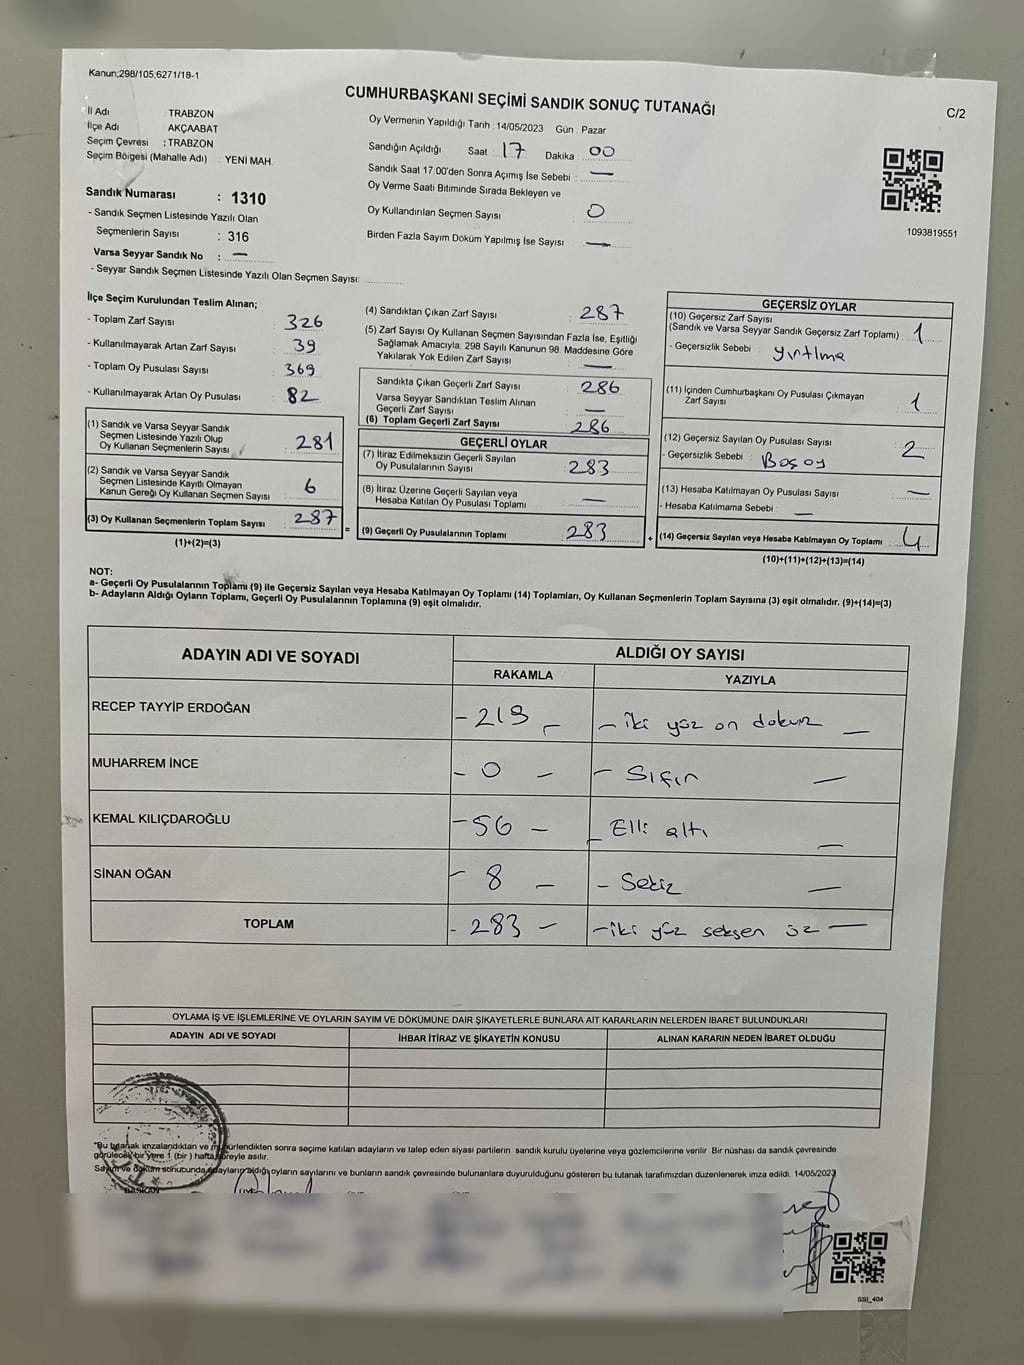 Kanun;298/105;6271/18-1
CUMHURBAŞKANI SEÇİMİ SANDIK SONUÇ TUTANAĞI
C/2
İl Adı : TRABZON
İlçe Adı AKÇAABAT
Seçim Çevresi : TRABZON
Seçim Bölgesi (Mahalle Adı) : YENİ MAH.
Sandık Numarası : 1310
- Sandık Seçmen Listesinde Yazılı Olan
Seçmenlerin Sayısı : 316
Varsa Seyyar Sandık No : —
- Seyyar Sandık Seçmen Listesinde Yazılı Olan Seçmen Sayısı:
Oy Vermenin Yapıldığı Tarih : 14/05/2023 Gün : Pazar
Sandığın Açıldığı Saat : 17 Dakika : 00
Sandık Saat 17:00'den Sonra Açımış İse Sebebi : —
Oy Verme Saati Bitiminde Sırada Bekleyen ve
Oy Kullandırılan Seçmen Sayısı : 0
Birden Fazla Sayım Döküm Yapılmış İse Sayısı : —
1093819551
İlçe Seçim Kurulundan Teslim Alınan;
- Toplam Zarf Sayısı : 326
- Kullanılmayarak Artan Zarf Sayısı : 39
- Toplam Oy Pusulası Sayısı : 369
- Kullanılmayarak Artan Oy Pusulası : 82
(1) Sandık ve Varsa Seyyar Sandık
Seçmen Listesinde Yazılı Olup
Oy Kullanan Seçmenlerin Sayısı : 281
(2) Sandık ve Varsa Seyyar Sandık
Seçmen Listesinde Kayıtlı Olmayan
Kanun Gereği Oy Kullanan Seçmen Sayısı : 6
(3) Oy Kullanan Seçmenlerin Toplam Sayısı : 287
(1)+(2)=(3)
=
(4) Sandıktan Çıkan Zarf Sayısı : 287
(5) Zarf Sayısı Oy Kullanan Seçmen Sayısından Fazla İse, Eşitliği
Sağlamak Amacıyla, 298 Sayılı Kanunun 98. Maddesine Göre
Yakılarak Yok Edilen Zarf Sayısı : —
Sandıkta Çıkan Geçerli Zarf Sayısı : 286
Varsa Seyyar Sandıktan Teslim Alınan
Geçerli Zarf Sayısı : —
(6) Toplam Geçerli Zarf Sayısı : 286
GEÇERLİ OYLAR
(7) İtiraz Edilmeksizin Geçerli Sayılan
Oy Pusulalarının Sayısı : 283
(8) İtiraz Üzerine Geçerli Sayılan veya
Hesaba Katılan Oy Pusulası Toplamı : —
(9) Geçerli Oy Pusulalarının Toplamı : 283
+
GEÇERSİZ OYLAR
(10) Geçersiz Zarf Sayısı
(Sandık ve Varsa Seyyar Sandık Geçersiz Zarf Toplamı) : 1
- Geçersizlik Sebebi : yırtılma
(11) İçinden Cumhurbaşkanı Oy Pusulası Çıkmayan
Zarf Sayısı : 1
(12) Geçersiz Sayılan Oy Pusulası Sayısı : 2
- Geçersizlik Sebebi : Boş oy
(13) Hesaba Katılmayan Oy Pusulası Sayısı : —
- Hesaba Katılmama Sebebi : —
(14) Geçersiz Sayılan veya Hesaba Katılmayan Oy Toplamı : 4
(10)+(11)+(12)+(13)=(14)
NOT:
a- Geçerli Oy Pusulalarının Toplamı (9) ile Geçersiz Sayılan veya Hesaba Katılmayan Oy Toplamı (14) Toplamları, Oy Kullanan Seçmenlerin Toplam Sayısına (3) eşit olmalıdır. (9)+(14)=(3)
b- Adayların Aldığı Oyların Toplamı, Geçerli Oy Pusulalarının Toplamına (9) eşit olmalıdır.
ADAYIN ADI VE SOYADI
ALDIĞI OY SAYISI
RAKAMLA YAZIYLA
RECEP TAYYİP ERDOĞAN - 219 - - iki yüz on dokuz —
MUHARREM İNCE - 0 - - Sıfır —
KEMAL KILIÇDAROĞLU - 56 - - Elli altı —
SİNAN OĞAN - 8 - - Sekiz —
TOPLAM - 283 - - iki yüz seksen üz —
OYLAMA İŞ VE İŞLEMLERİNE VE OYLARIN SAYIM VE DÖKÜMÜNE DAİR ŞİKAYETLERLE BUNLARA AİT KARARLARIN NELERDEN İBARET BULUNDUKLARI
ADAYIN ADI VE SOYADI İHBAR İTİRAZ VE ŞİKAYETİN KONUSU ALINAN KARARIN NEDEN İBARET OLDUĞU
"Bu tutanak imzalandıktan ve mühürlendikten sonra seçime katılan adayların ve talep eden siyasi partilerin sandık kurulu üyelerine veya gözlemcilerine verilir. Bir nüshası da sandık çevresinde
görülecek bir yere 1 (bir ) hafta süreyle asılır.
Sayım ve döküm sonucunda adayların aldığı oyların sayılarını ve bunların sandık çevresinde bulunanlara duyurulduğunu gösteren bu tutanak tarafımızdan düzenlenerek imza edildi. 14/05/2023
BAŞKAN
GSI_404